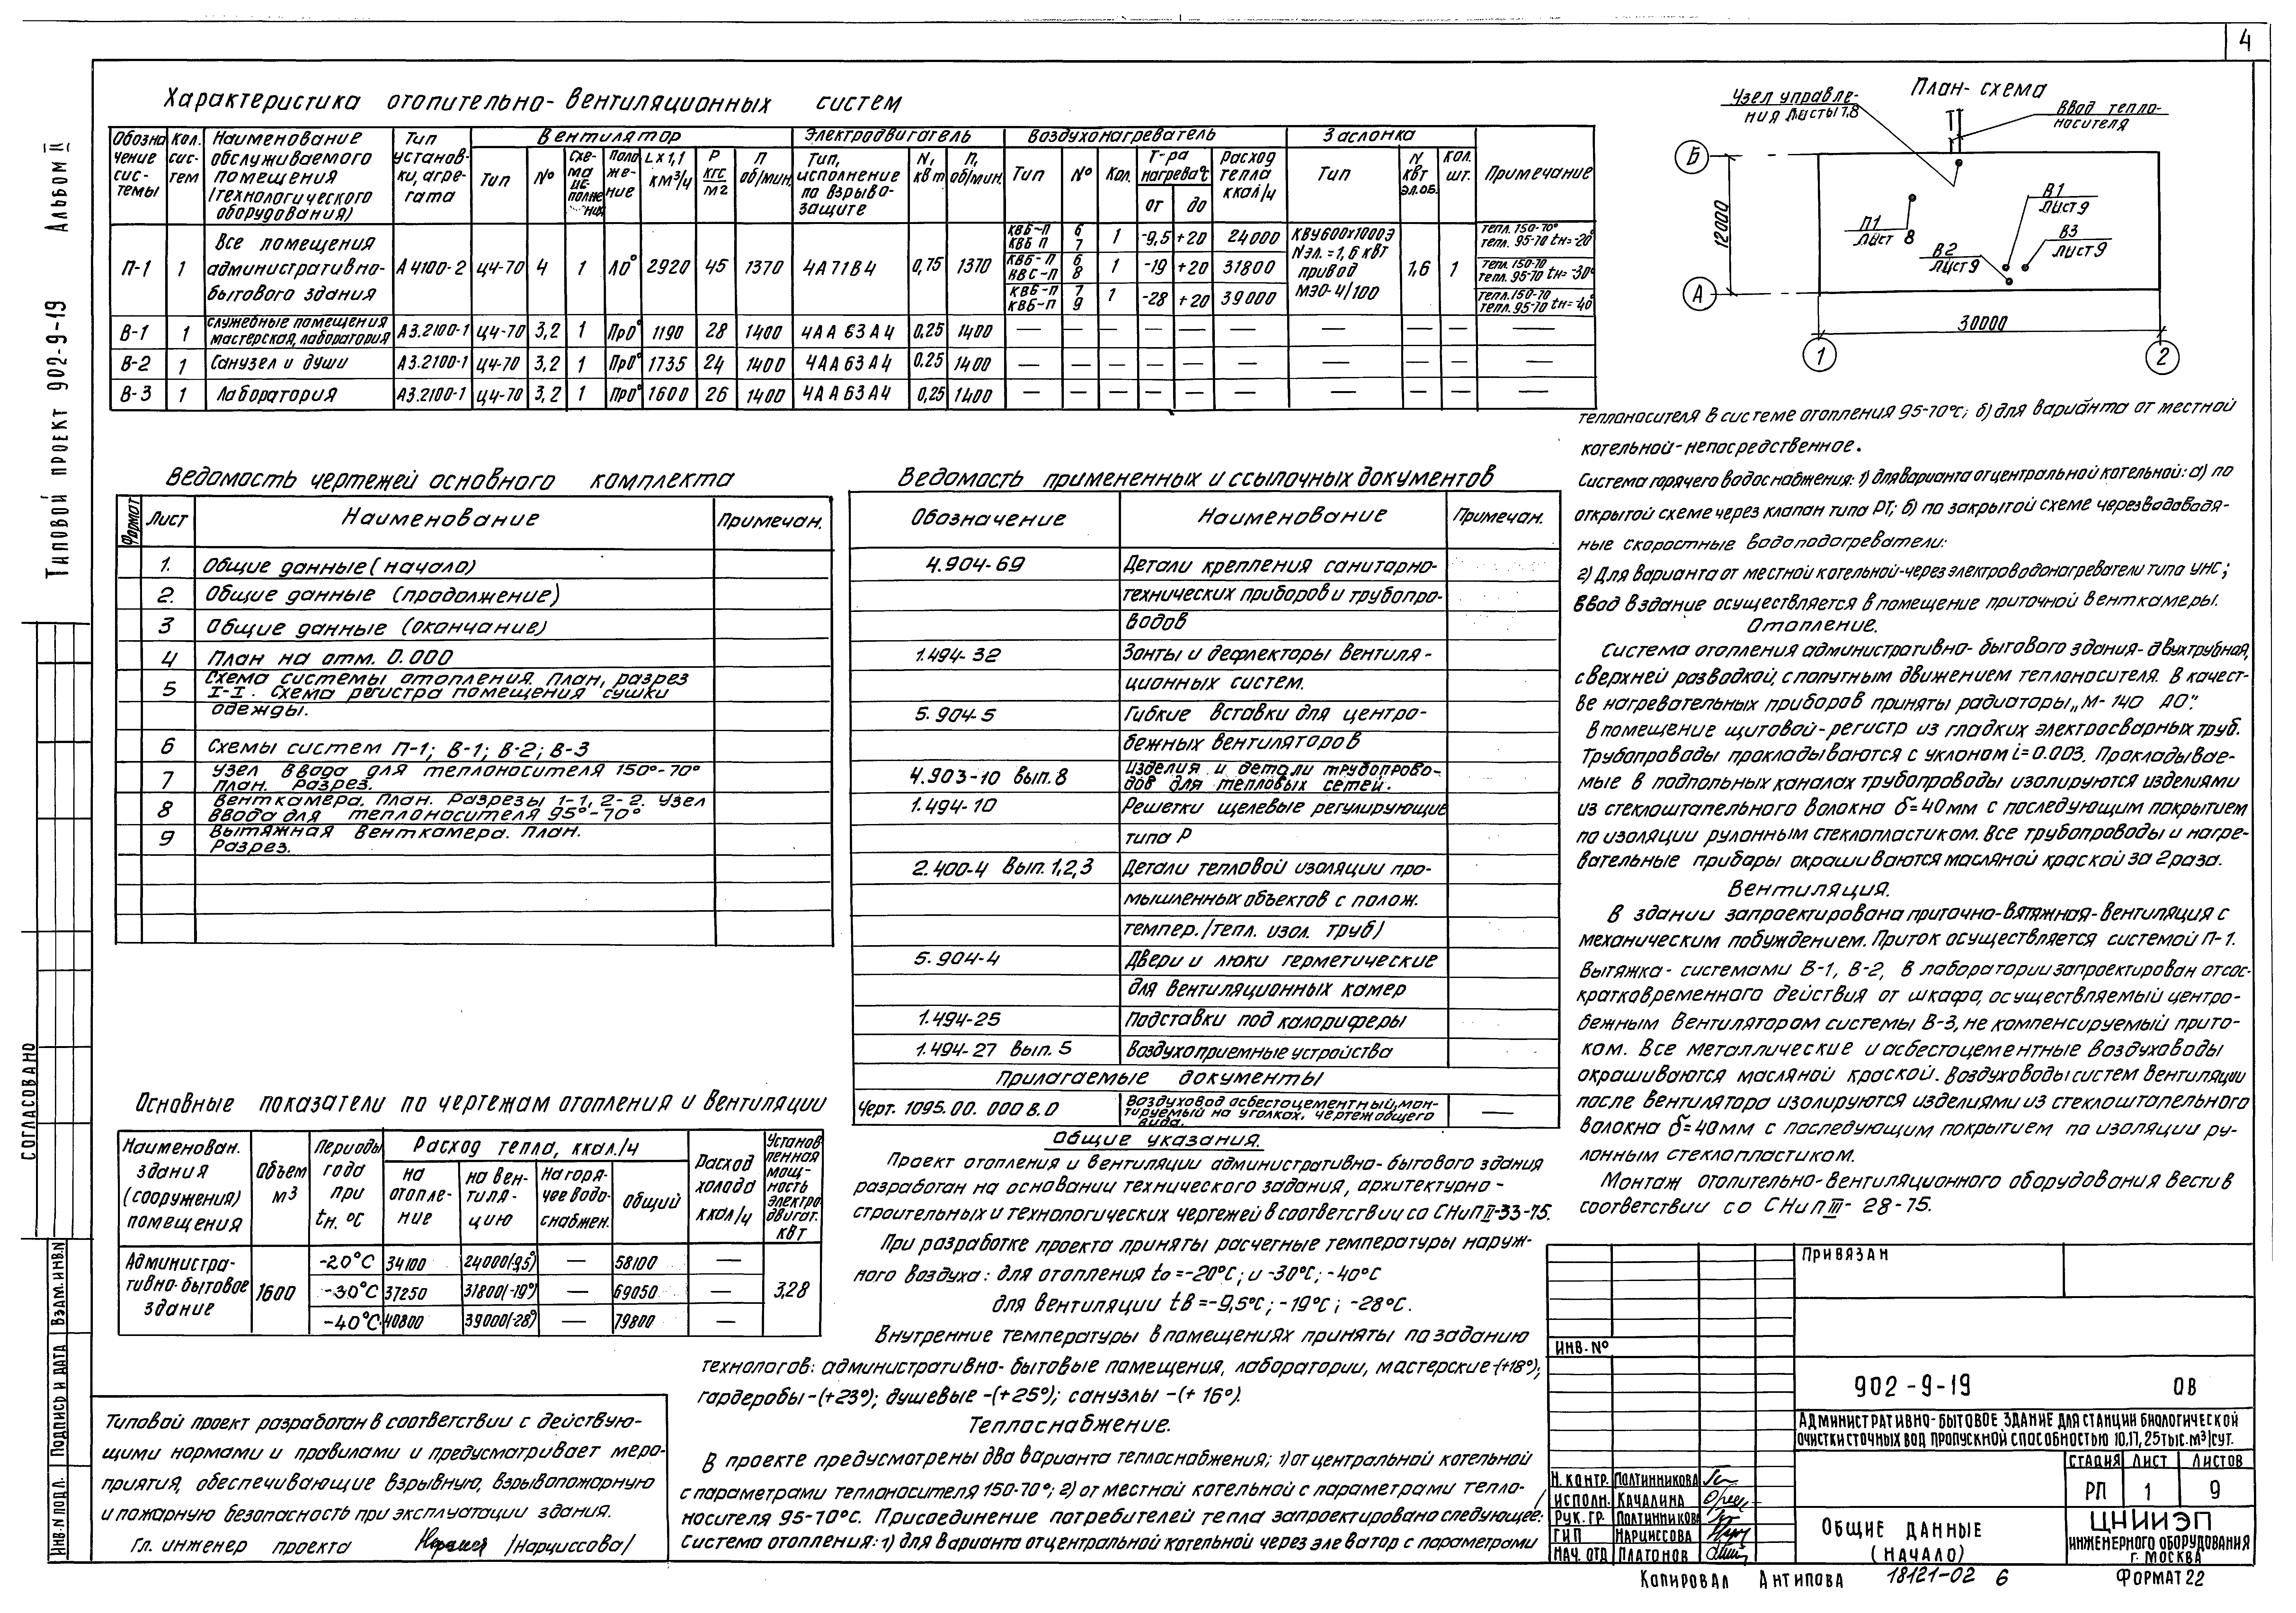 4
Типовой проект 902-9-19 Альбом II
Характеристика отопительно-вентиляционных систем
Обозначение системы | Кол. систем | Наименование обслуживаемого помещения (технологического оборудования) | Тип установки, агрегата | Вентилятор | Электродвигатель | Воздухонагреватель | Заслонка | Примечание
Тип | № | Схема исполнения | Положение | L x 1,1 км³/ч | P кгс/м2 | П об/мин. | Тип, исполнение по взрывозащите | N, квт | П, об/мин. | Тип | № | Кол. | Т-ра нагрева °С от до | Расход тепла ккал/ч | Тип | N квт эл.об. | Кол. шт.
П-1 | 1 | Все помещения административно-бытового здания | А4100-2 | Ц4-70 | 4 | 1 | Л0° | 2920 | 45 | 1370 | 4А71В4 | 0,75 | 1370 | КВБ-П КВБ П | 6 7 | 1 | -9,5 | +20 | 24000 | КВУ600х1000Э Nэл.=1,6 квт привод МЭО-4/100 | 1,6 | 1 | тепл. 150-70° тепл. 95-70 tн=-20°
КВБ-П КВС-П | 6 8 | 1 | -19 | +20 | 31800 | тепл. 150-70 тепл. 95-70 tн=-30°
КВБ-П КВБ-П | 7 9 | 1 | -28 | +20 | 39000 | тепл. 150-70 тепл. 95-70 tн=-40°
В-1 | 1 | служебные помещения мастерская, лаборатория | А3.2100-1 | Ц4-70 | 3,2 | 1 | Пр0° | 1190 | 28 | 1400 | 4АА63А4 | 0,25 | 1400 | — | — | — | — | — | — | — | — | — | —
В-2 | 1 | Санузел и души | А3.2100-1 | Ц4-70 | 3,2 | 1 | Пр0° | 1735 | 24 | 1400 | 4АА63А4 | 0.25 | 1400 | — | — | — | — | — | — | — | — | — | —
В-3 | 1 | Лаборатория | А3.2100-1 | Ц4-70 | 3,2 | 1 | Пр0° | 1600 | 26 | 1400 | 4АА63А4 | 0,25 | 1400 | — | — | — | — | — | — | — | — | — | —
План-схема
Узел управле-
ния Листы 7,8
Ввод тепло-
носителя
Т
Б
А
12000
30000
1
2
П1
Лист 8
В1
Лист 9
В2
Лист 9
В3
Лист 9
Ведомость чертежей основного комплекта
Формат | Лист | Наименование | Примечан.
1. Общие данные (начало)
2. Общие данные (продолжение)
3 Общие данные (окончание)
4 План на отм. 0.000
5 Схема системы отопления. План, разрез
I-I. Схема регистра помещения сушки
одежды.
6 Схемы систем П-1; В-1; В-2; В-3
7 Узел ввода для теплоносителя 150°-70°
план. Разрез.
8 Венткамера. План. Разрезы 1-1, 2-2. Узел
ввода для теплоносителя 95°-70°
9 Вытяжная венткамера. План.
Разрез.
Ведомость примененных и ссылочных документов
Обозначение | Наименование | Примечан.
4.904-69 Детали крепления санитарно-
технических приборов и трубопро-
водов
1.494-32 Зонты и дефлекторы вентиля-
ционных систем.
5.904-5 Гибкие вставки для центро-
бежных вентиляторов
4.903-10 вып. 8 Изделия и детали трубопрово-
дов для тепловых сетей.
1.494-10 Решетки щелевые регулирующие
типа Р
2.400-4 Вып. 1,2,3 Детали тепловой изоляции про-
мышленных объектов с полож.
темпер. /тепл. изол. труб)
5.904-4 Двери и люки герметические
для вентиляционных камер
1.494-25 Подставки под калориферы
1.494-27 вып. 5 Воздухоприемные устройства
Прилагаемые документы
Черт. 1095.00.000 В.О Воздуховод асбестоцементный, мон-
тируемый на уголках, чертеж общего
вида. —
Основные показатели по чертежам отопления и вентиляции
Наименован. здания (сооружения) помещения | Объем м3 | Периоды года при tн. °С | Расход тепла, ккал/ч | Расход холода ккал/ч | Установленная мощность электродвигат. квт
на отопление | на вентиляцию | На горячее водоснабжен. | общий
Административно-бытовое здание | 1600 | -20°С | 34100 | 24000(-9,5°) | — | 58100 | — | 3,28
-30°С | 37250 | 31800(-19°) | — | 69050 | —
-40°С | 40800 | 39000(-28°) | — | 79800 | —
Общие указания.
Проект отопления и вентиляции административно-бытового здания
разработан на основании технического задания, архитектурно-
строительных и технологических чертежей в соответствии со СНиП II-33-75.
При разработке проекта приняты расчетные температуры наруж-
ного воздуха: для отопления to=-20°С; и -30°С; -40°С
для вентиляции tв=-9,5°С; -19°С; -28°С.
Внутренние температуры в помещениях приняты по заданию
технологов: административно-бытовые помещения, лаборатории, мастерские-(+18°);
гардеробы-(+23°); душевые-(+25°); санузлы-(+16°).
Теплоснабжение.
В проекте предусмотрены два варианта теплоснабжения; 1) от центральной котельной
с параметрами теплоносителя 150-70°; 2) от местной котельной с параметрами тепло-
носителя 95-70°С. Присоединение потребителей тепла запроектировано следующее:
Система отопления: 1) для варианта от центральной котельной через элеватор с параметрами
теплоносителя в системе отопления 95-70°С; б) для варианта от местной
котельной-непосредственное.
Система горячего водоснабжения: 1) для варианта от центральной котельной: а) по
открытой схеме через клапан типа РТ; б) по закрытой схеме через водоводя-
ные скоростные водоподогреватели:
2) Для варианта от местной котельной-через электроводонагреватели типа УНС;
Ввод в здание осуществляется в помещение приточной венткамеры.
Отопление.
Система отопления административно-бытового здания-двухтрубная,
с верхней разводкой, с попутным движением теплоносителя. В качест-
ве нагревательных приборов приняты радиаторы „М-140 АО".
В помещение щитовой-регистр из гладких электросварных труб.
Трубопроводы прокладываются с уклоном i=0.003. Прокладывае-
мые в подпольных каналах трубопроводы изолируются изделиями
из стеклоштапельного волокна δ=40мм с последующим покрытием
по изоляции рулонным стеклопластиком. Все трубопроводы и нагре-
вательные прибары окрашиваются масляной краской за 2 раза.
Вентиляция.
В здании запроектирована приточно-вятяжная-вентиляция с
механическим побуждением. Приток осуществляется системой П-1.
Вытяжка- системами В-1, В-2, В лаборатории запроектирован отсос-
кратковременного действия от шкафа, осуществляемый центро-
бежным вентилятором системы В-3, не компенсируемый прито-
ком. Все металлические и асбестоцементные воздуховоды
окрашиваются масляной краской. Воздуховоды систем вентиляции
после вентилятора изолируются изделиями из стеклоштапельного
волокна δ=40мм с последующим покрытием по изоляции ру-
лонным стеклопластиком.
Монтаж отопительно-вентиляционного оборудования вести в
соответствии со СНиП III-28-75.
Типовой проект разработан в соответствии с действую-
щими нормами и правилами и предусматривает меро-
приятия, обеспечивающие взрывную, взрывопожарную
и пожарную безопасность при эксплуатации здания.
Гл. инженер проекта /Нарциссова/
Согласовано
Инв.N подл. | Подпись и дата | Взам.инв.N
Привязан
Инв.№
902-9-19 ОВ
Административно-бытовое здание для станции биологической
очистки сточных вод пропускной способностью 10,17,25 тыс.м³/сут.
Стадия | Лист | Листов
РП | 1 | 9
Н.контр. Полтинникова
Исполн. Качалина
Рук.гр. Полтинникова
ГИП Нарциссова
Нач.отд Платонов
Общие данные
(начало)
ЦНИИЭП
инженерного оборудования
г. Москва
Копировал Антипова 18121-02 6 Формат 22